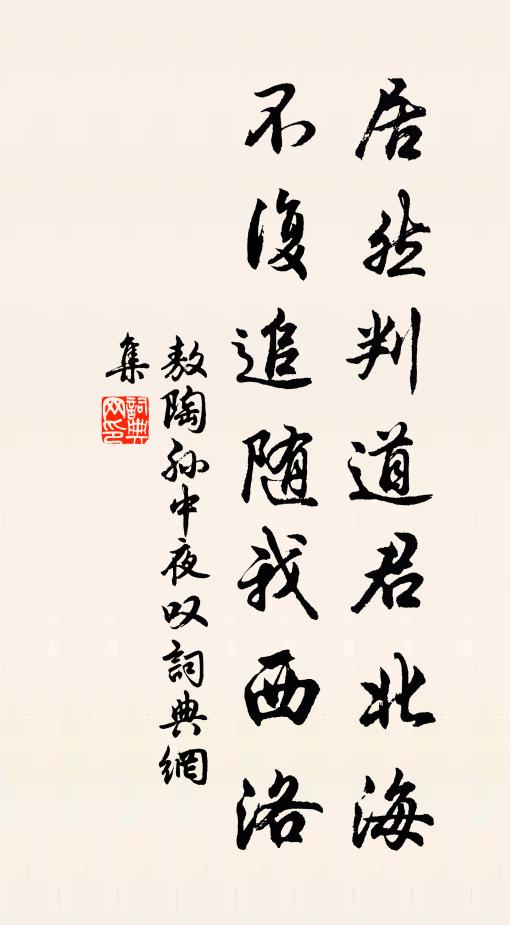 居然判道君北海
不復追随我西洛
敖陶孙中夜叹詞典網
集
詞典网印